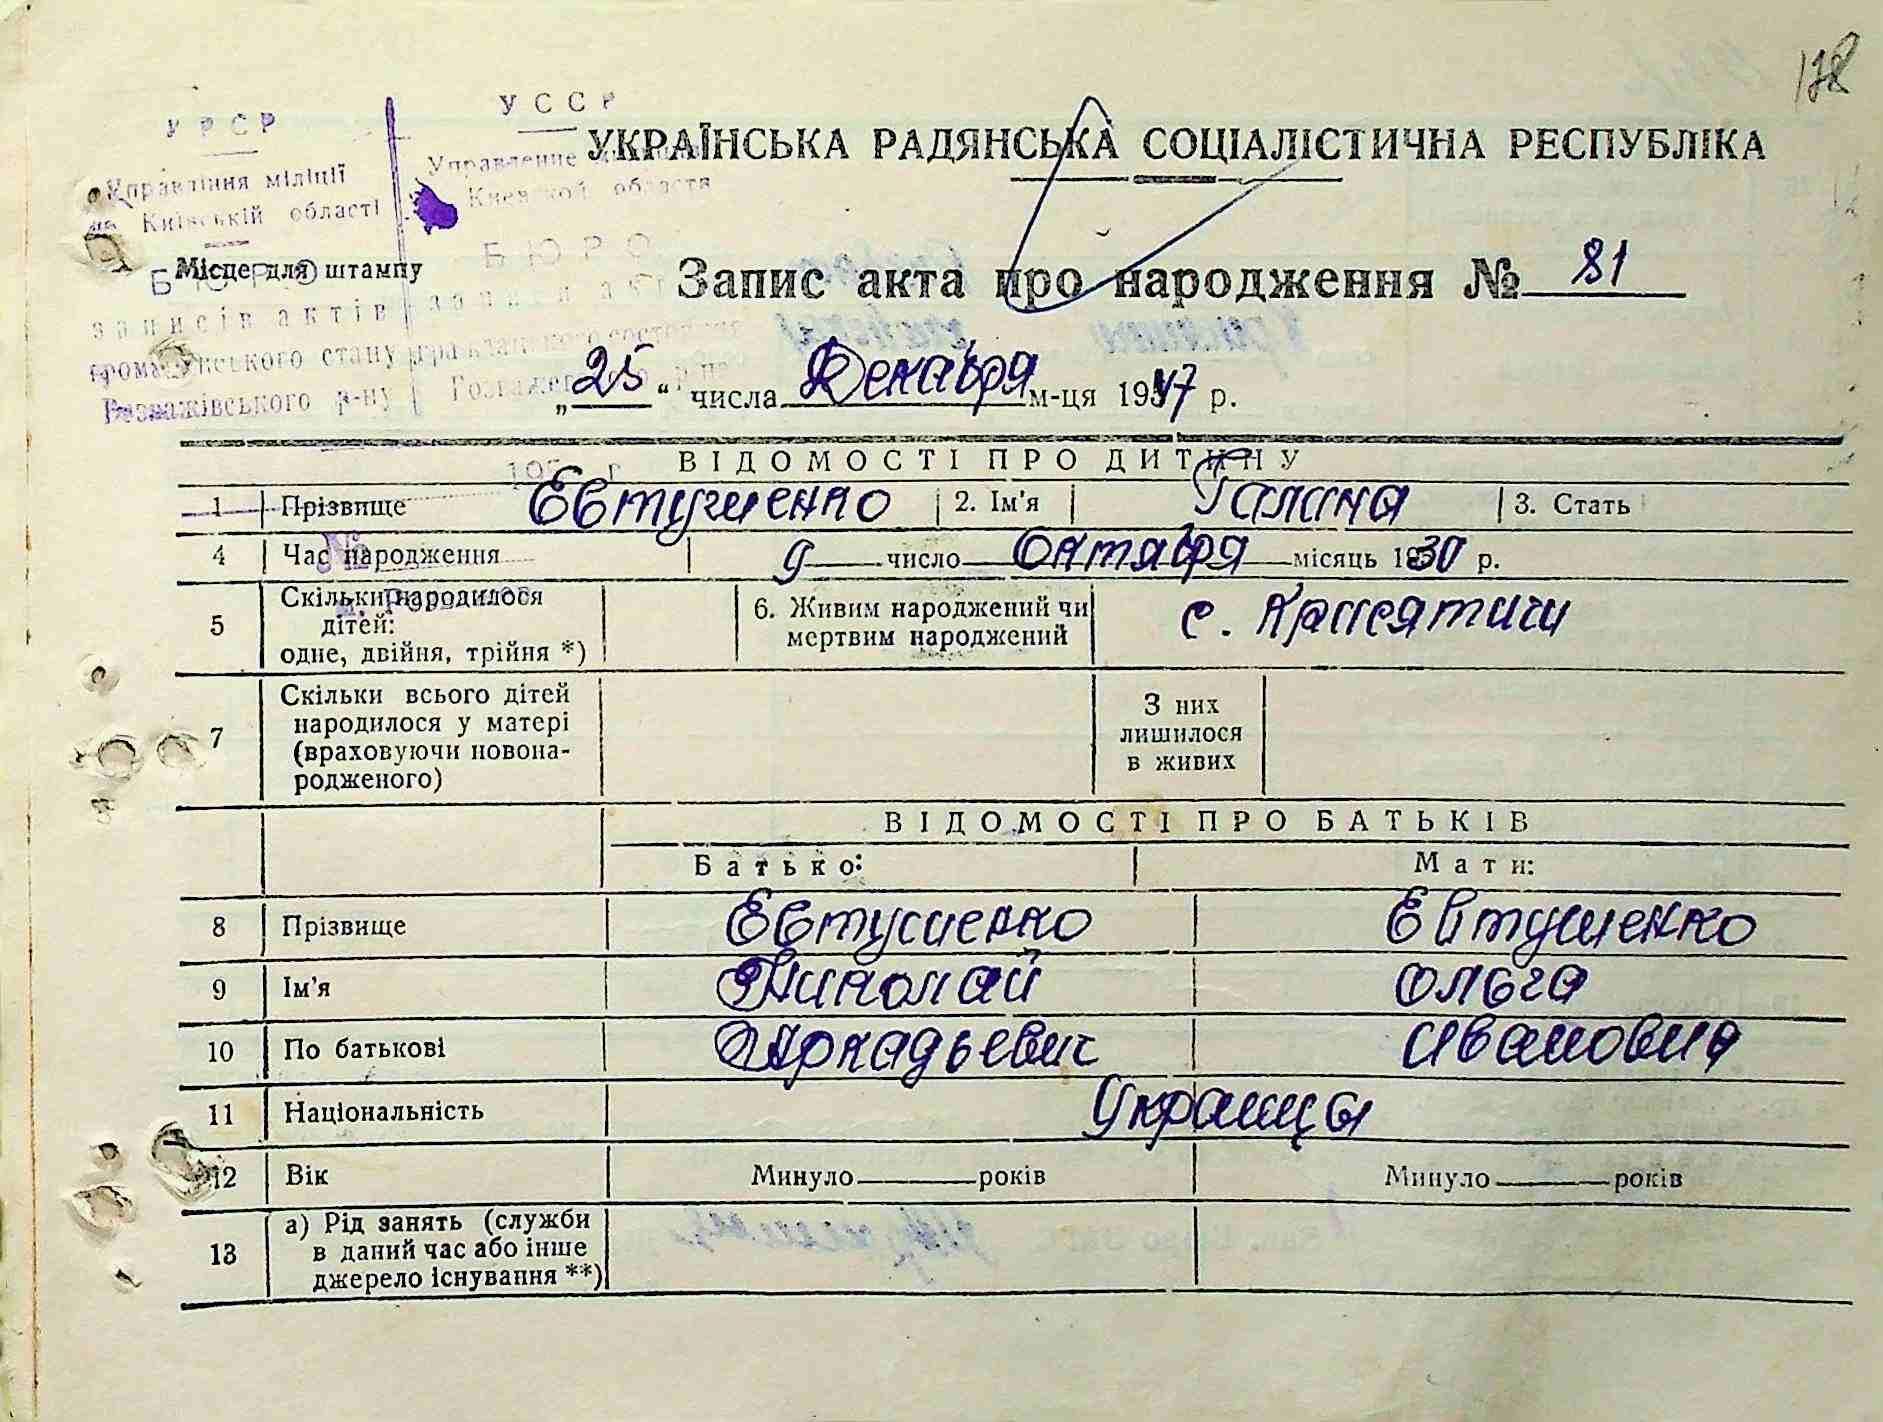 178
УРСР
УССР
УКРАЇНСЬКА РАДЯНСЬКА СОЦІАЛІСТИЧНА РЕСПУБЛІКА
Управління міліції
Управление
Київській області
Киевской области
БЮРО
Місце для штампу
БЮРО
Запис акта про народження № 81
записів актів
записи
громадянського стану
гражданского состояния
Розважівського р-ну
„25“ числа Декабря м-ця 1947 р.
ВІДОМОСТІ ПРО ДИТИНУ
1 Прізвище Евтушенко 2. Ім'я Галина 3. Стать
4 Час народження 9 число Октября місяць 1930 р.
5 Скільки народилося дітей: одне, двійня, трійня *) 6. Живим народжений чи мертвим народжений с. Красятичи
7 Скільки всього дітей народилося у матері (враховуючи новонародженого) З них лишилося в живих
ВІДОМОСТІ ПРО БАТЬКІВ
Батько: Мати:
8 Прізвище Евтушенко Евтушенко
9 Ім'я Николай Ольга
10 По батькові Аркадьевич Ивановна
11 Національність Украинцы
12 Вік Минуло років Минуло років
13 а) Рід занять (служби в даний час або інше джерело існування **)